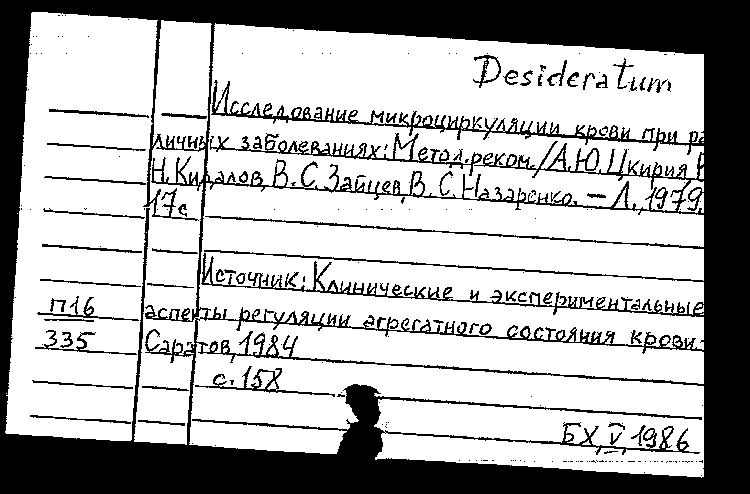 Desideratum
Исследование микроциркуляции крови при ра
личных заболеваниях: Метод.реком./А.Ю.Цкирия,
Н.Кидалов, В.С.Зайцев, В.С.Назаренко. — Л., 1979.
17с
Источник: Клинические и экспериментальные
П16 аспекты регуляции агрегатного состояния крови.
335 Саратов, 1984
с.158
БХ, V, 1986